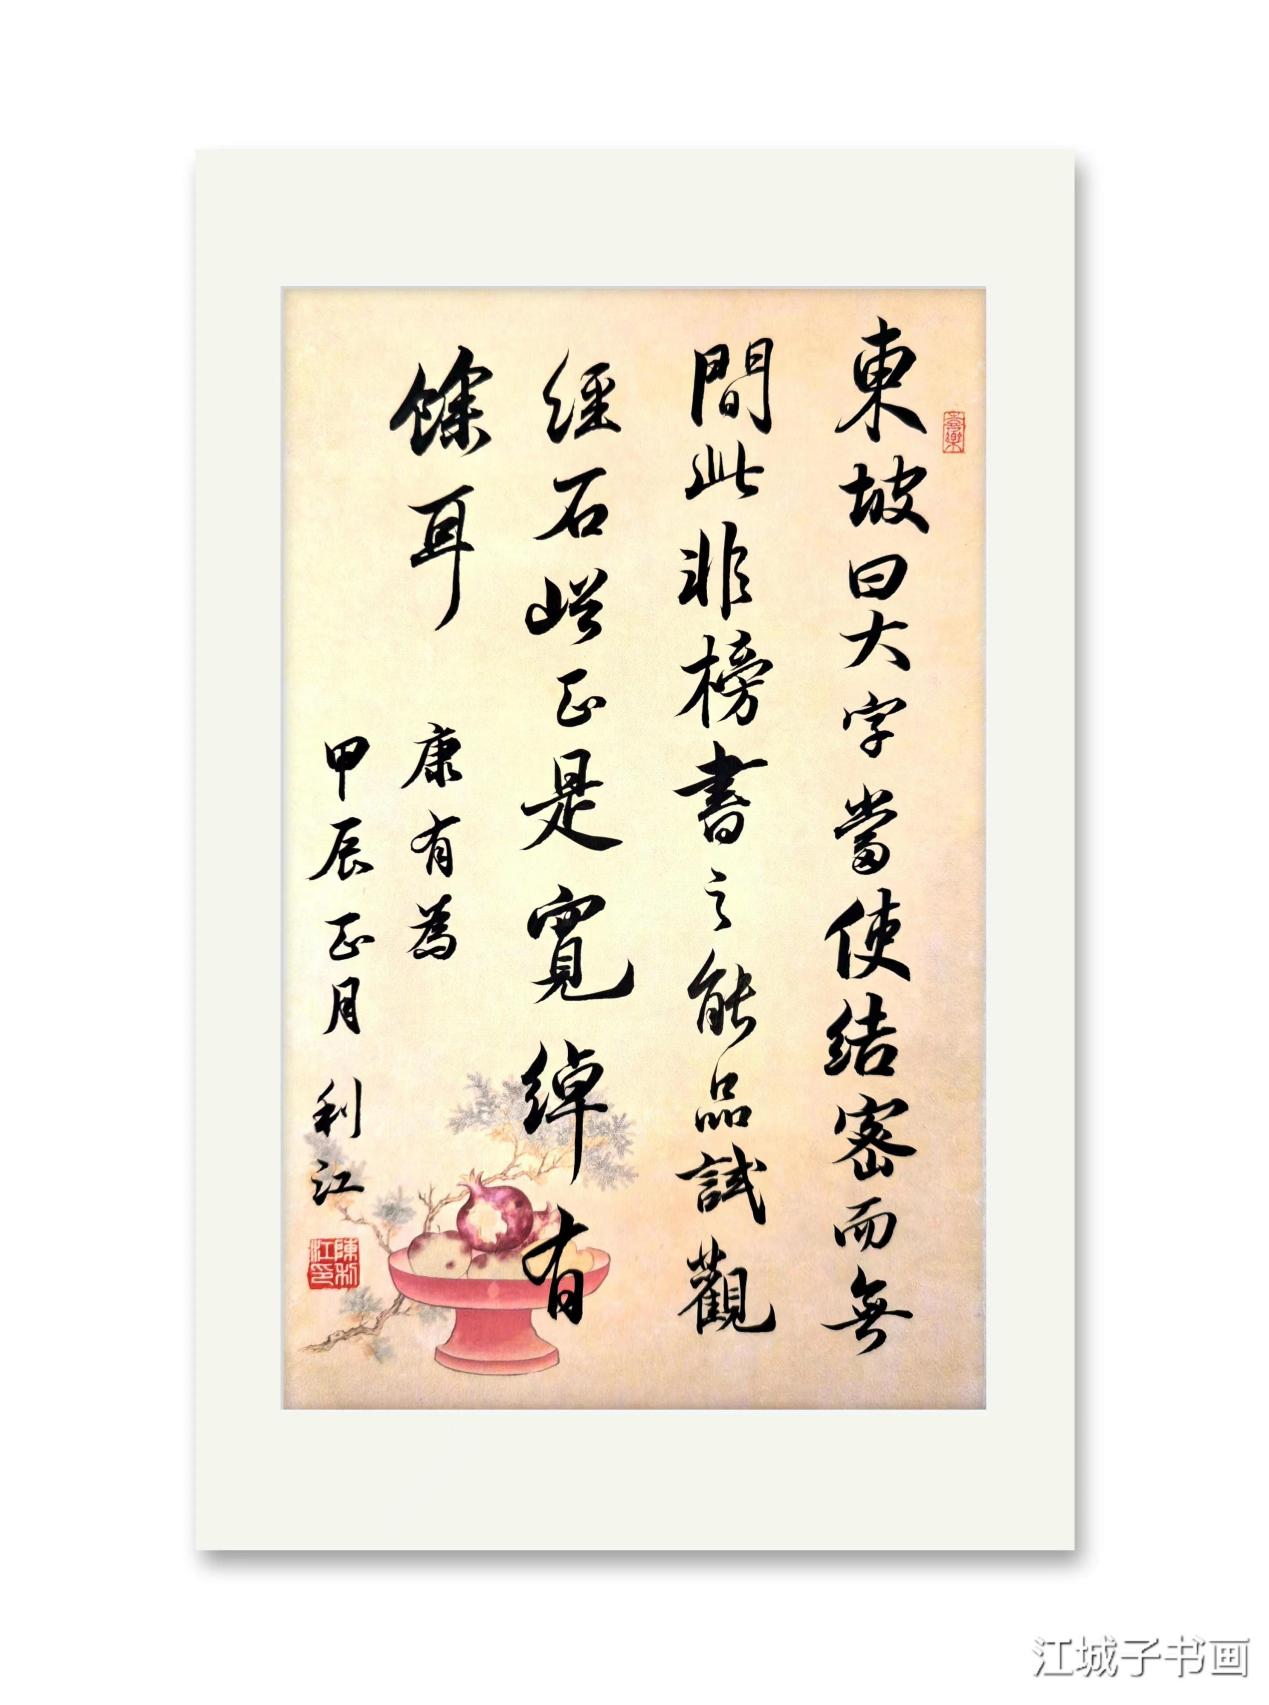 東坡曰大字當使結密而無
間此非榜書之能品試觀
經石峪正是寬綽有
餘耳
康有為
甲辰正月利江
陳利江印
江城子书画